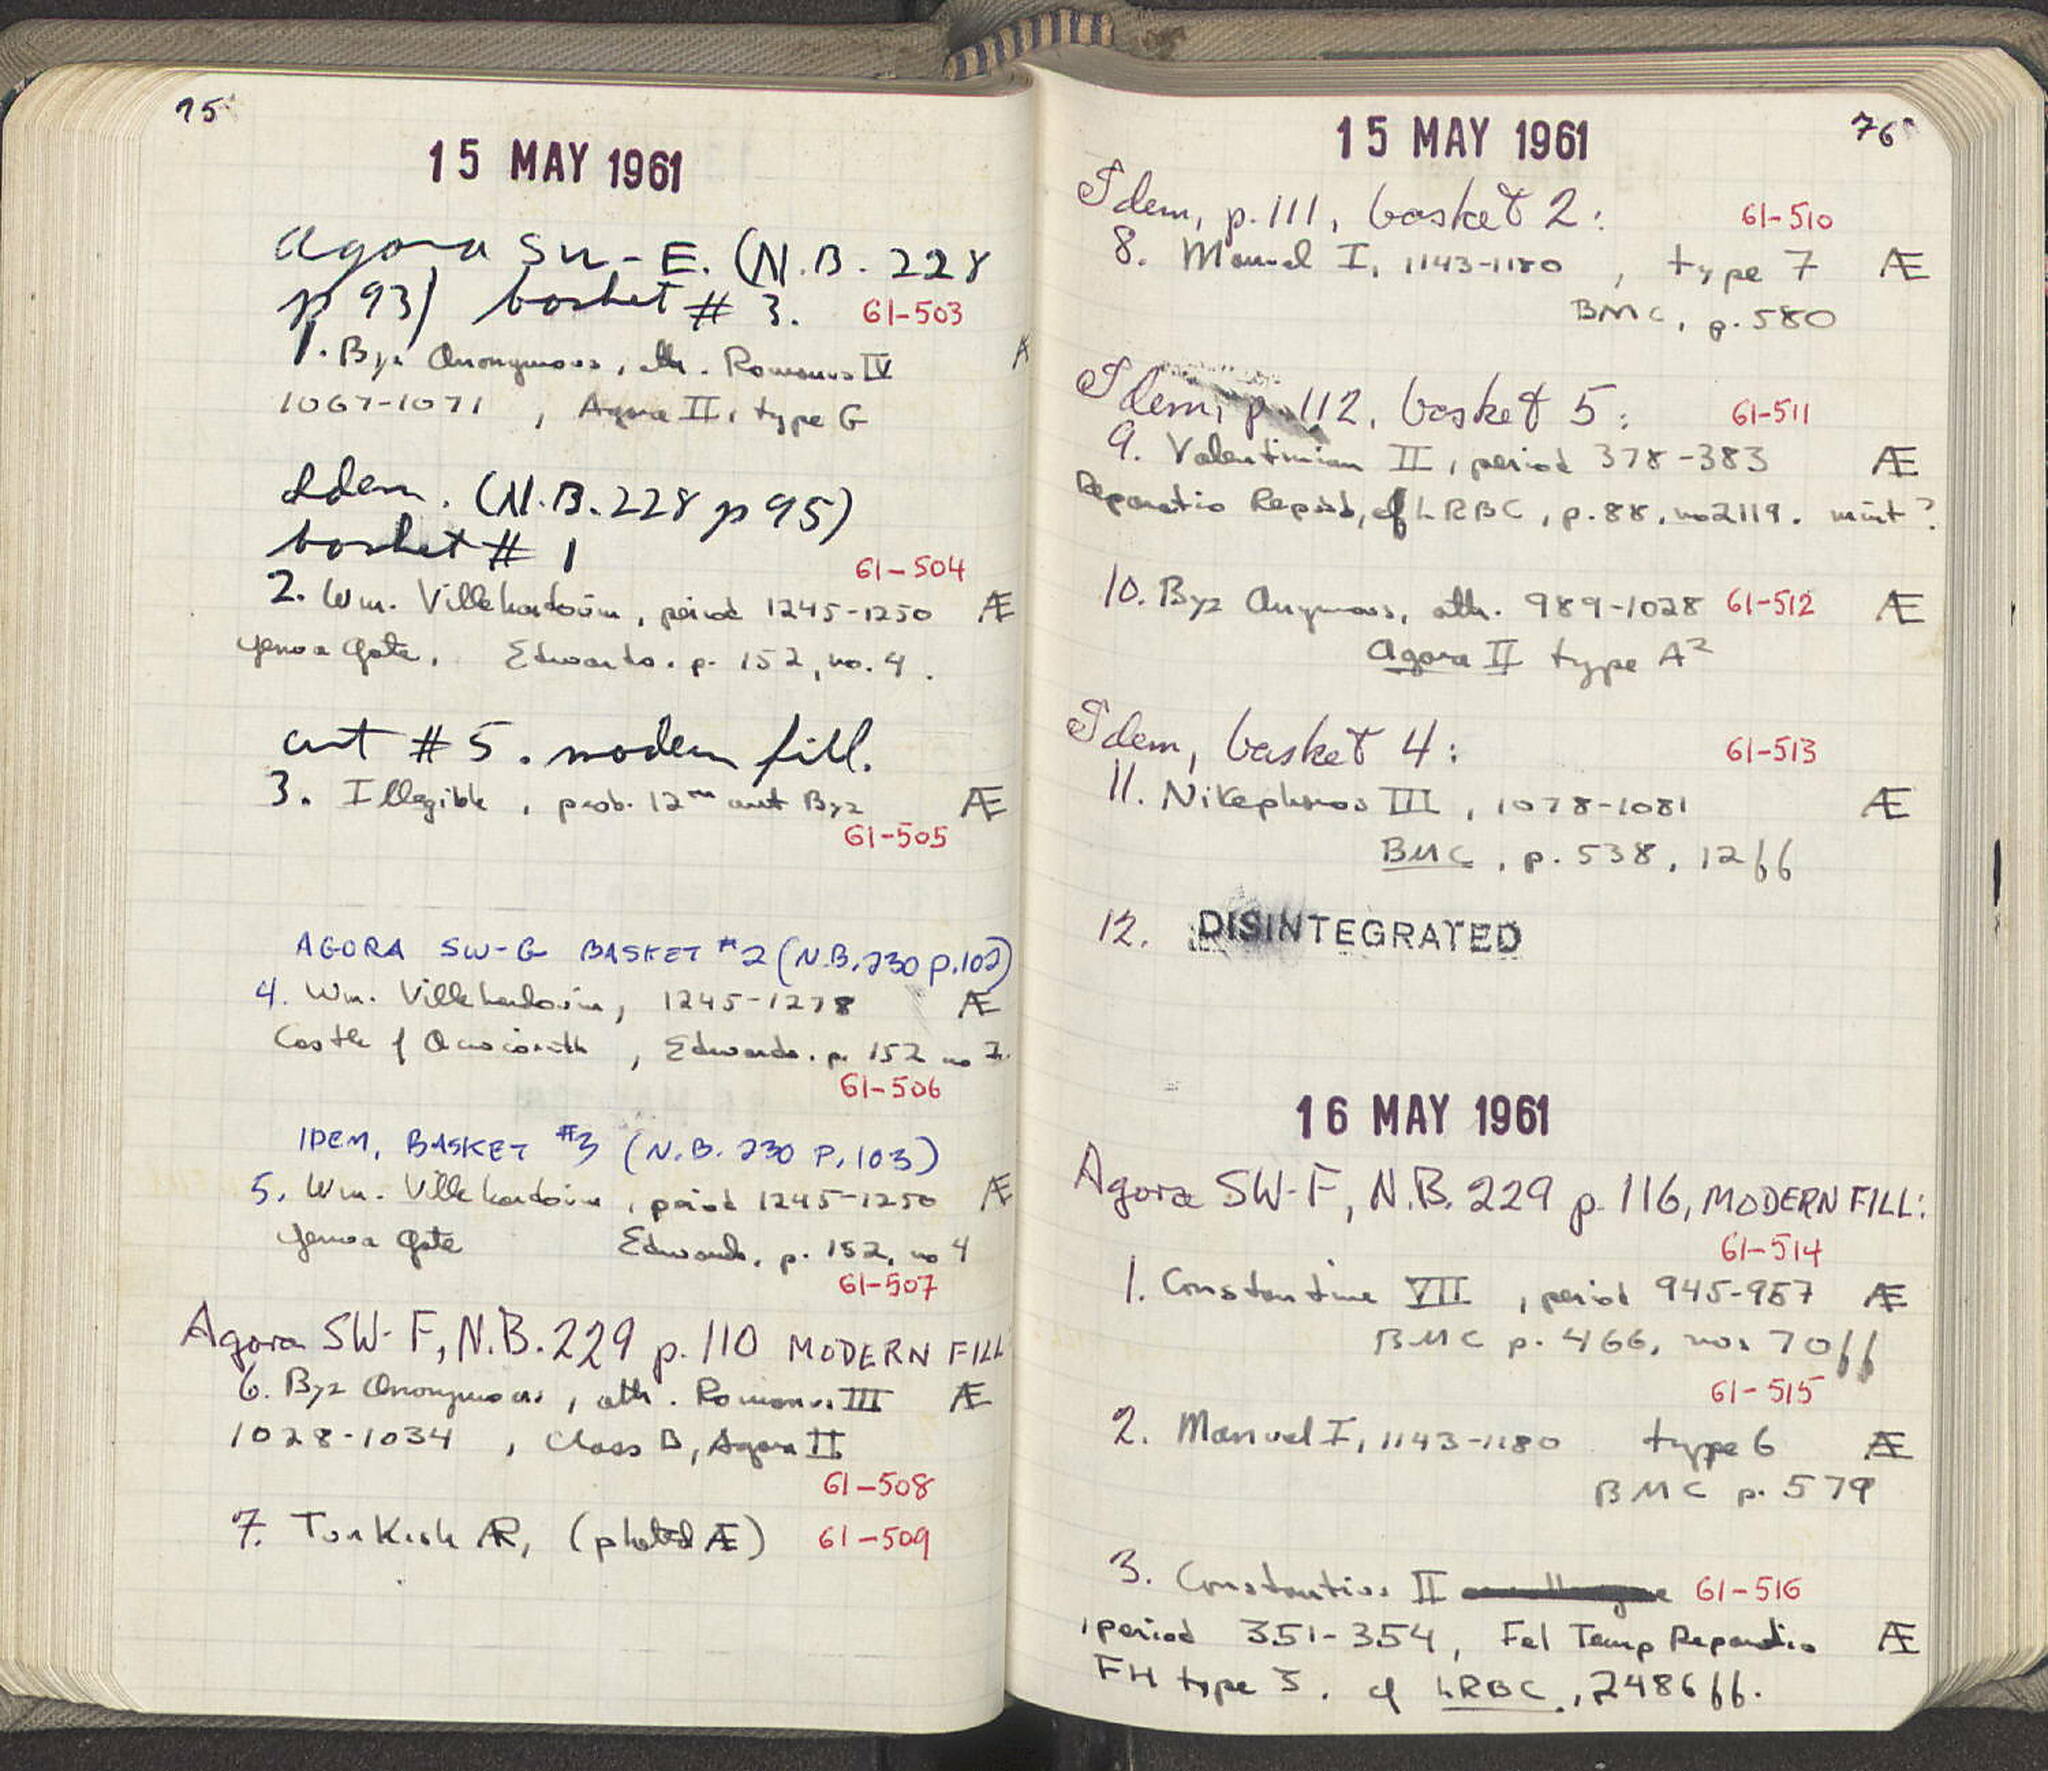 75
15 MAY 1961
Agora SW-E. (N.B. 228
p 93) basket # 3. 61-503
1. Byz Anonymous, attr. Romanus IV Æ
1067-1071, Agora II, type G
Idem. (N.B. 228 p 95)
basket # 1
61-504
2. Wm. Villehardouin, period 1245-1250 Æ
Genoa Gate, Edwards. p. 152, no. 4.
cut # 5. modern fill.
3. Illegible, prob. 12th cent Byz Æ
61-505
AGORA SW-G BASKET #2 (N.B. 230 P. 102)
4. Wm. Villehardouin, 1245-1278 Æ
Castle of Acrocorinth, Edwards. p. 152 no 2.
61-506
IDEM, BASKET #3 (N.B. 230 P. 103)
5. Wm. Villehardouin, period 1245-1250 Æ
Genoa Gate Edwards, p. 152, no 4
61-507
Agora SW-F, N.B. 229 p. 110 MODERN FILL
6. Byz Anonymous, attr. Romanus III Æ
1028-1034, Class B, Agora II
61-508
7. Turkish AR, (plated Æ) 61-509
76
15 MAY 1961
Idem, p. 111, basket 2:
61-510
8. Manuel I, 1143-1180, type 7 Æ
BMC, p. 580
Idem, p. 112, basket 5: 61-511
9. Valentinian II, period 378-383 Æ
Reparatio Reipub, cf LRBC, p. 88, no 2119. mint?
10. Byz Anymous, attr. 989-1028 61-512 Æ
Agora II type A2
Idem, basket 4: 61-513
11. Nikephoros III, 1078-1081 Æ
BMC, p. 538, 12ff
12. DISINTEGRATED
16 MAY 1961
Agora SW-F, N.B. 229 p. 116, MODERN FILL:
61-514
1. Constantine VII, period 945-957 Æ
BMC p. 466, nos 70ff
61-515
2. Manuel I, 1143-1180 type 6 Æ
BMC p. 579
3. Constantius II 61-516
, period 351-354, Fel Temp Reparatio Æ
FH type 3. cf LRBC, 2486ff.